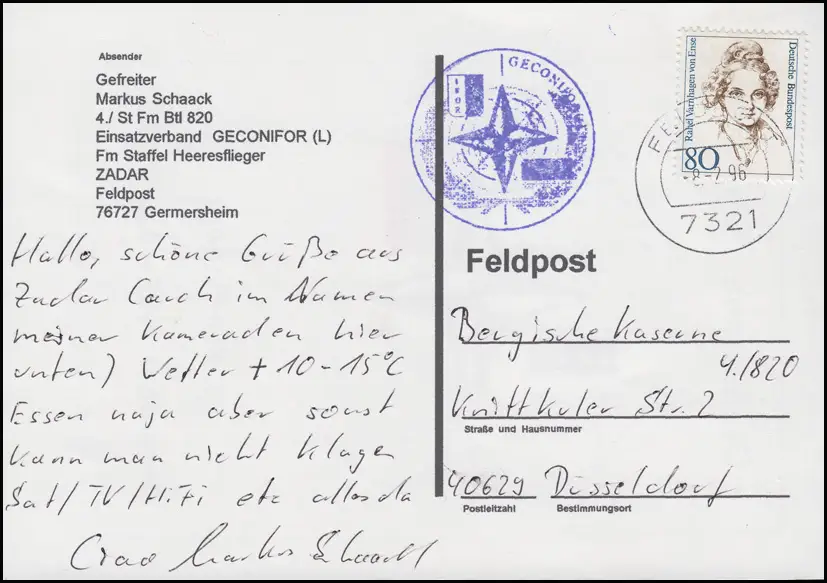 Absender
Gefreiter
Markus Schaack
4./ St Fm Btl 820
Einsatzverband GECONIFOR (L)
Fm Staffel Heeresflieger
ZADAR
Feldpost
76727 Germersheim
Hallo, schöne Grüße aus
Zadar (auch im Namen
meiner Kameraden hier
unten) Wetter + 10 - 15°C
Essen naja aber sonst
kann man nicht klagen
Sat/TV/HiFi etc alles da
Ciao Markus Schaack
GECONIFOR
IFOR
Rahel Varnhagen von Ense
Deutsche Bundespost
80
7321
Feldpost
Bergische Kaserne
4./820
Knittkuler Str. 2
Straße und Hausnummer
40629 Düsseldorf
Postleitzahl Bestimmungsort